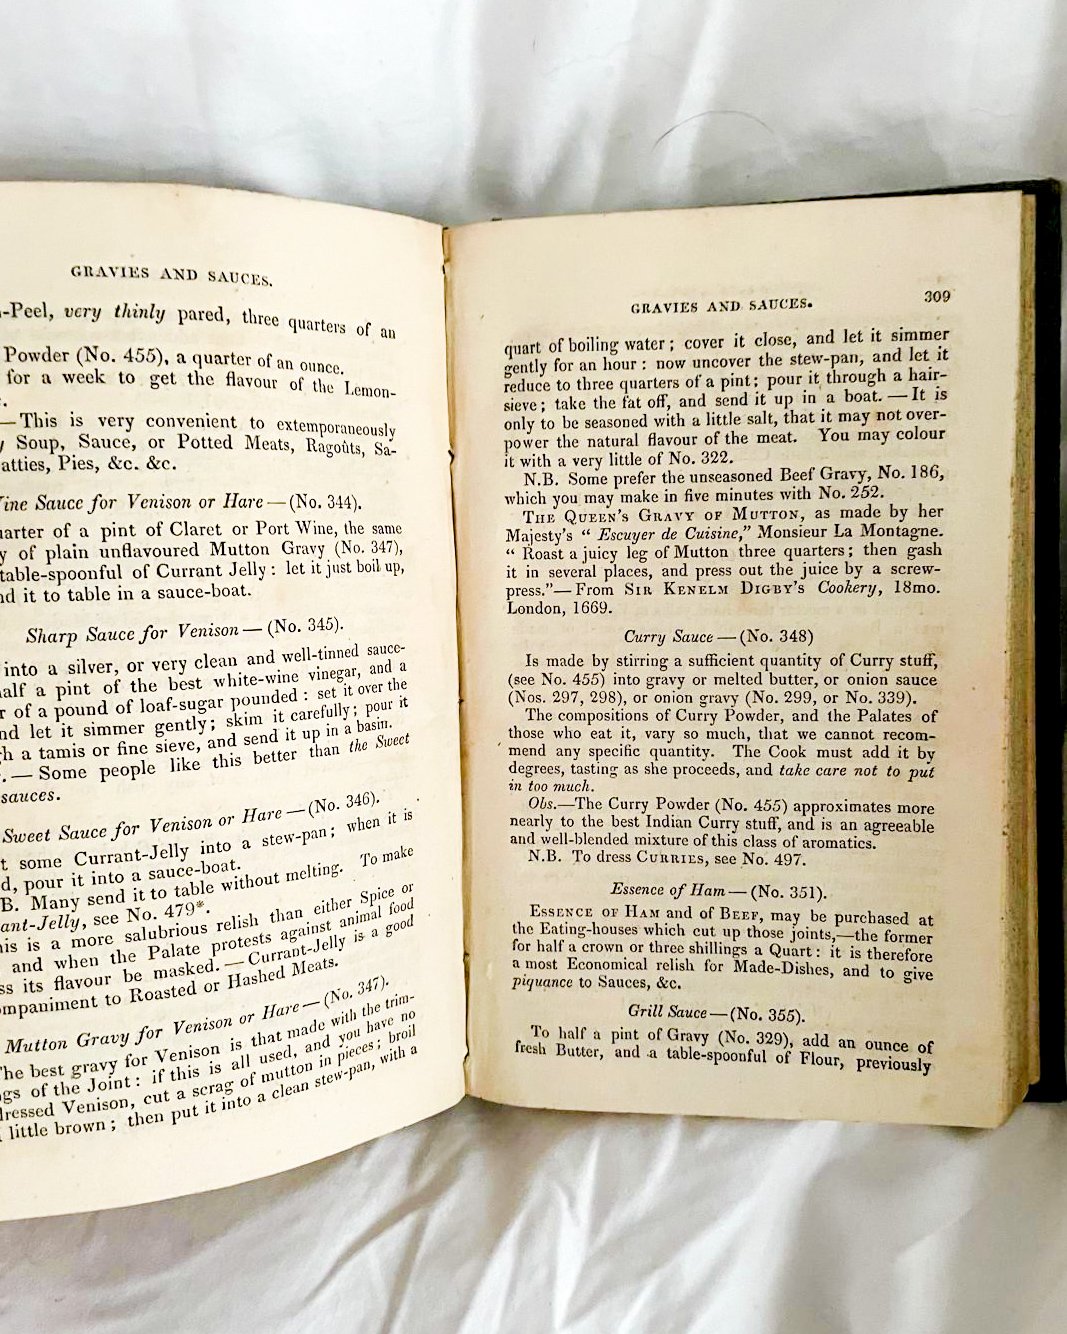 GRAVIES AND SAUCES.
-Peel, very thinly pared, three quarters of an
Powder (No. 455), a quarter of an ounce.
for a week to get the flavour of the Lemon-
—This is very convenient to extemporaneously
Soup, Sauce, or Potted Meats, Ragoûts, Sa-
atties, Pies, &c. &c.
ine Sauce for Venison or Hare—(No. 344).
uarter of a pint of Claret or Port Wine, the same
y of plain unflavoured Mutton Gravy (No. 347),
table-spoonful of Currant Jelly: let it just boil up,
nd it to table in a sauce-boat.
Sharp Sauce for Venison—(No. 345).
into a silver, or very clean and well-tinned sauce-
alf a pint of the best white-wine vinegar, and a
r of a pound of loaf-sugar pounded: set it over the
nd let it simmer gently; skim it carefully; pour it
h a tamis or fine sieve, and send it up in a basin.
.—Some people like this better than the Sweet
sauces.
Sweet Sauce for Venison or Hare—(No. 346).
t some Currant-Jelly into a stew-pan; when it is
d, pour it into a sauce-boat.
B. Many send it to table without melting. To make
ant-Jelly, see No. 479*.
his is a more salubrious relish than either Spice or
and when the Palate protests against animal food
ss its flavour be masked.—Currant-Jelly is a good
mpaniment to Roasted or Hashed Meats.
Mutton Gravy for Venison or Hare—(No. 347).
The best gravy for Venison is that made with the trim-
gs of the Joint: if this is all used, and you have no
dressed Venison, cut a scrag of mutton in pieces; broil
little brown; then put it into a clean stew-pan, with a
GRAVIES AND SAUCES. 309
quart of boiling water; cover it close, and let it simmer
gently for an hour: now uncover the stew-pan, and let it
reduce to three quarters of a pint; pour it through a hair-
sieve; take the fat off, and send it up in a boat.—It is
only to be seasoned with a little salt, that it may not over-
power the natural flavour of the meat. You may colour
it with a very little of No. 322.
N.B. Some prefer the unseasoned Beef Gravy, No. 186,
which you may make in five minutes with No. 252.
THE QUEEN'S GRAVY OF MUTTON, as made by her
Majesty's "Escuyer de Cuisine," Monsieur La Montagne.
"Roast a juicy leg of Mutton three quarters; then gash
it in several places, and press out the juice by a screw-
press."—From SIR KENELM DIGBY'S Cookery, 18mo.
London, 1669.
Curry Sauce—(No. 348)
Is made by stirring a sufficient quantity of Curry stuff,
(see No. 455) into gravy or melted butter, or onion sauce
(Nos. 297, 298), or onion gravy (No. 299, or No. 339).
The compositions of Curry Powder, and the Palates of
those who eat it, vary so much, that we cannot recom-
mend any specific quantity. The Cook must add it by
degrees, tasting as she proceeds, and take care not to put
in too much.
Obs.—The Curry Powder (No. 455) approximates more
nearly to the best Indian Curry stuff, and is an agreeable
and well-blended mixture of this class of aromatics.
N.B. To dress CURRIES, see No. 497.
Essence of Ham—(No. 351).
ESSENCE OF HAM and of BEEF, may be purchased at
the Eating-houses which cut up those joints,—the former
for half a crown or three shillings a Quart: it is therefore
a most Economical relish for Made-Dishes, and to give
piquance to Sauces, &c.
Grill Sauce—(No. 355).
To half a pint of Gravy (No. 329), add an ounce of
fresh Butter, and a table-spoonful of Flour, previously